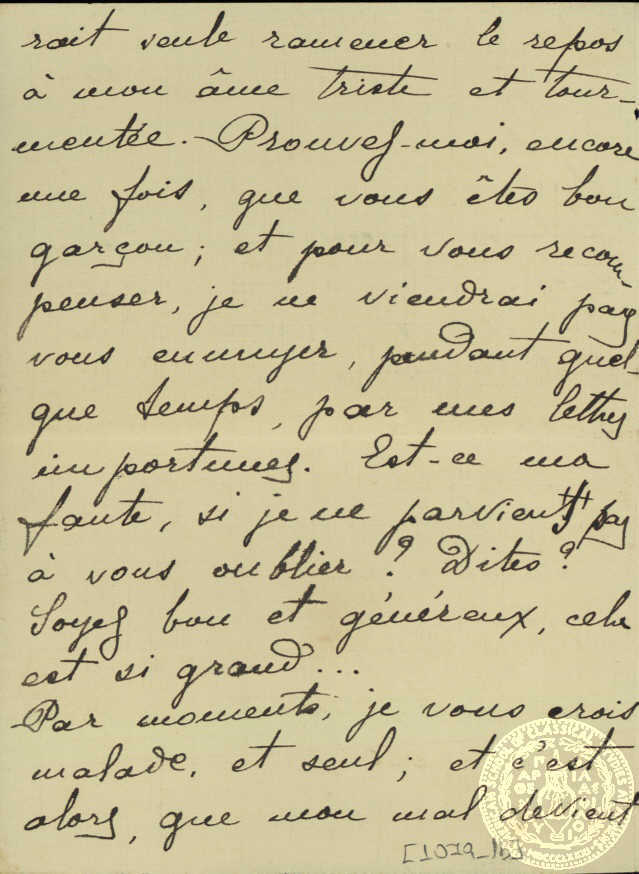 rait seule ramener le repos
à mon âme triste et tour-
mentée. - Prouvez-moi, encore
une fois, que vous êtes bon
garçon; et pour vous recom-
penser, je ne viendrai pas
vous ennuyer, pendant quel-
que temps, par mes lettres
importunes. Est-ce ma
faute, si je ne parviens pas
à vous oublier? Dites?
Soyez bon et généreux, cela
est si grand...
Par moments, je vous crois
malade, et seul; et c'est
alors, que mon mal devient
[1079_1b]